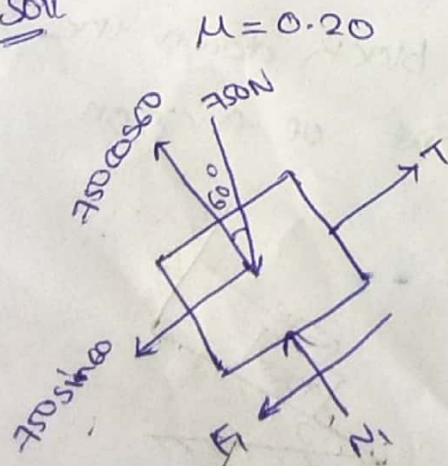 Soln
μ = 0.20
750cos60
750N
60°
T
750sin60
F₁
N₁